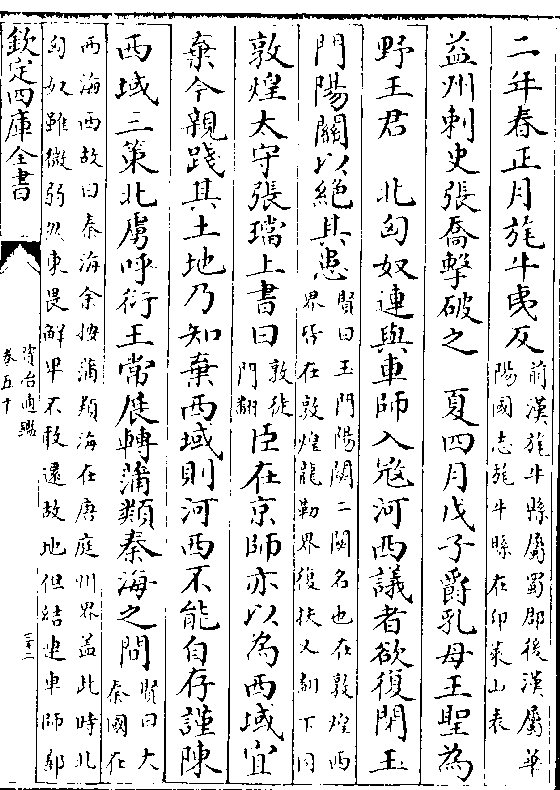 二年春正月旄牛夷反前漢旄牛縣屬蜀郡後漢屬華
陽國志旄牛縣在邛崍山表
益州刺史張喬擊破之　夏四月戊子爵乳母王聖為
野王君　北匈奴連與車師入寇河西議者欲復閉玉
門陽關以絶其患賢曰玉門陽關二關名也在敦煌西
界皆在敦煌龍勒界復扶又翻下同
敦煌太守張璫上書曰敦徒
門翻
臣在京師亦以為西域宜
棄今親踐其土地乃知棄西域則河西不能自存謹陳
西域三策北虜呼衍王常展轉蒲類秦海之間賢曰大
秦國在
西海西故曰秦海余按蒲類海在唐庭州界蓋此時北
匈奴雖微弱然東畏鮮卑不敢還故地但結連車師鄯
欽定四庫全書
資治通鑑
卷五十